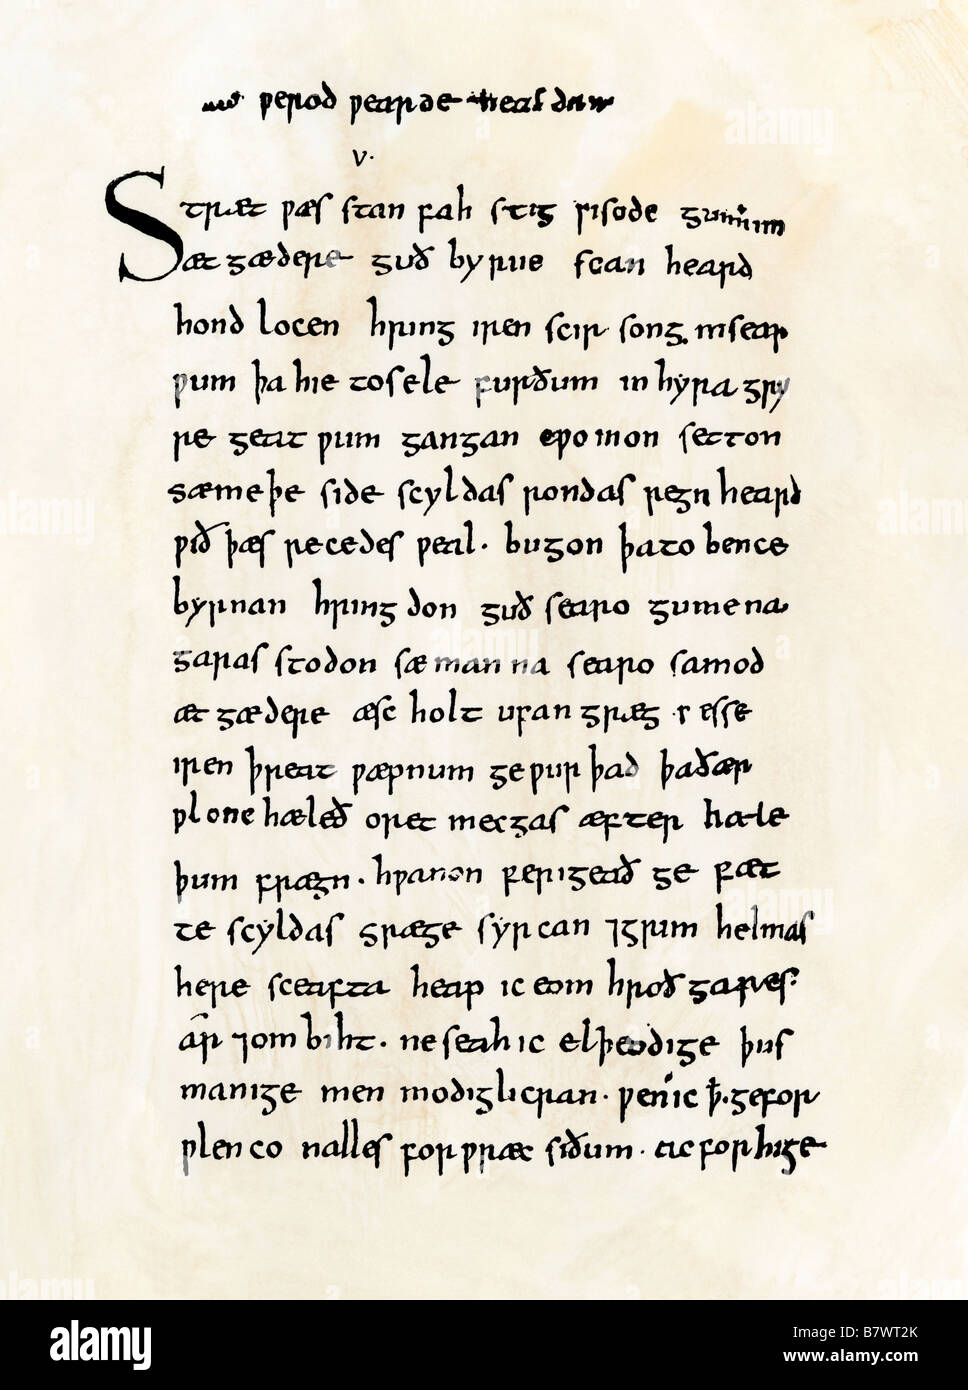 ƿerod ƿearde healdan
v.
Stræt ƿæs stan fah stig ƿisode gumum
æt gædere guð byrne scan heard
hond locen hring iren scir song in sear
ƿum þa hie to sele furðum in hyra gry
re geat ƿum gangan cƿomon setton
sæmeþe side scyldas rondas regn heard
ƿið þæs recedes ƿeal. bugon þa to bence
byrnan hring don guð searo gumena
garas stodon sæ man na searo samod
æt gædere æsc holt ufan græg . ƿ esse
iren þreat ƿæpnum ge ƿur þad þa ðær
ƿlone hæleð oret mecgas æfter hæle
þum frægn . hƿanon ferigeað ge fæt
te scyldas græge syrcan ⁊ grum helmas
here sceafta heap ic eom hroð gares.
ar ⁊ om biht. ne seah ic elþeodige þus
manige men modiglicran. ƿen ic ꝥ. ge for
ƿlen co nalles for ƿræc siðum . ac for hige
alamy
Image ID: B7WT2K
www.alamy.com